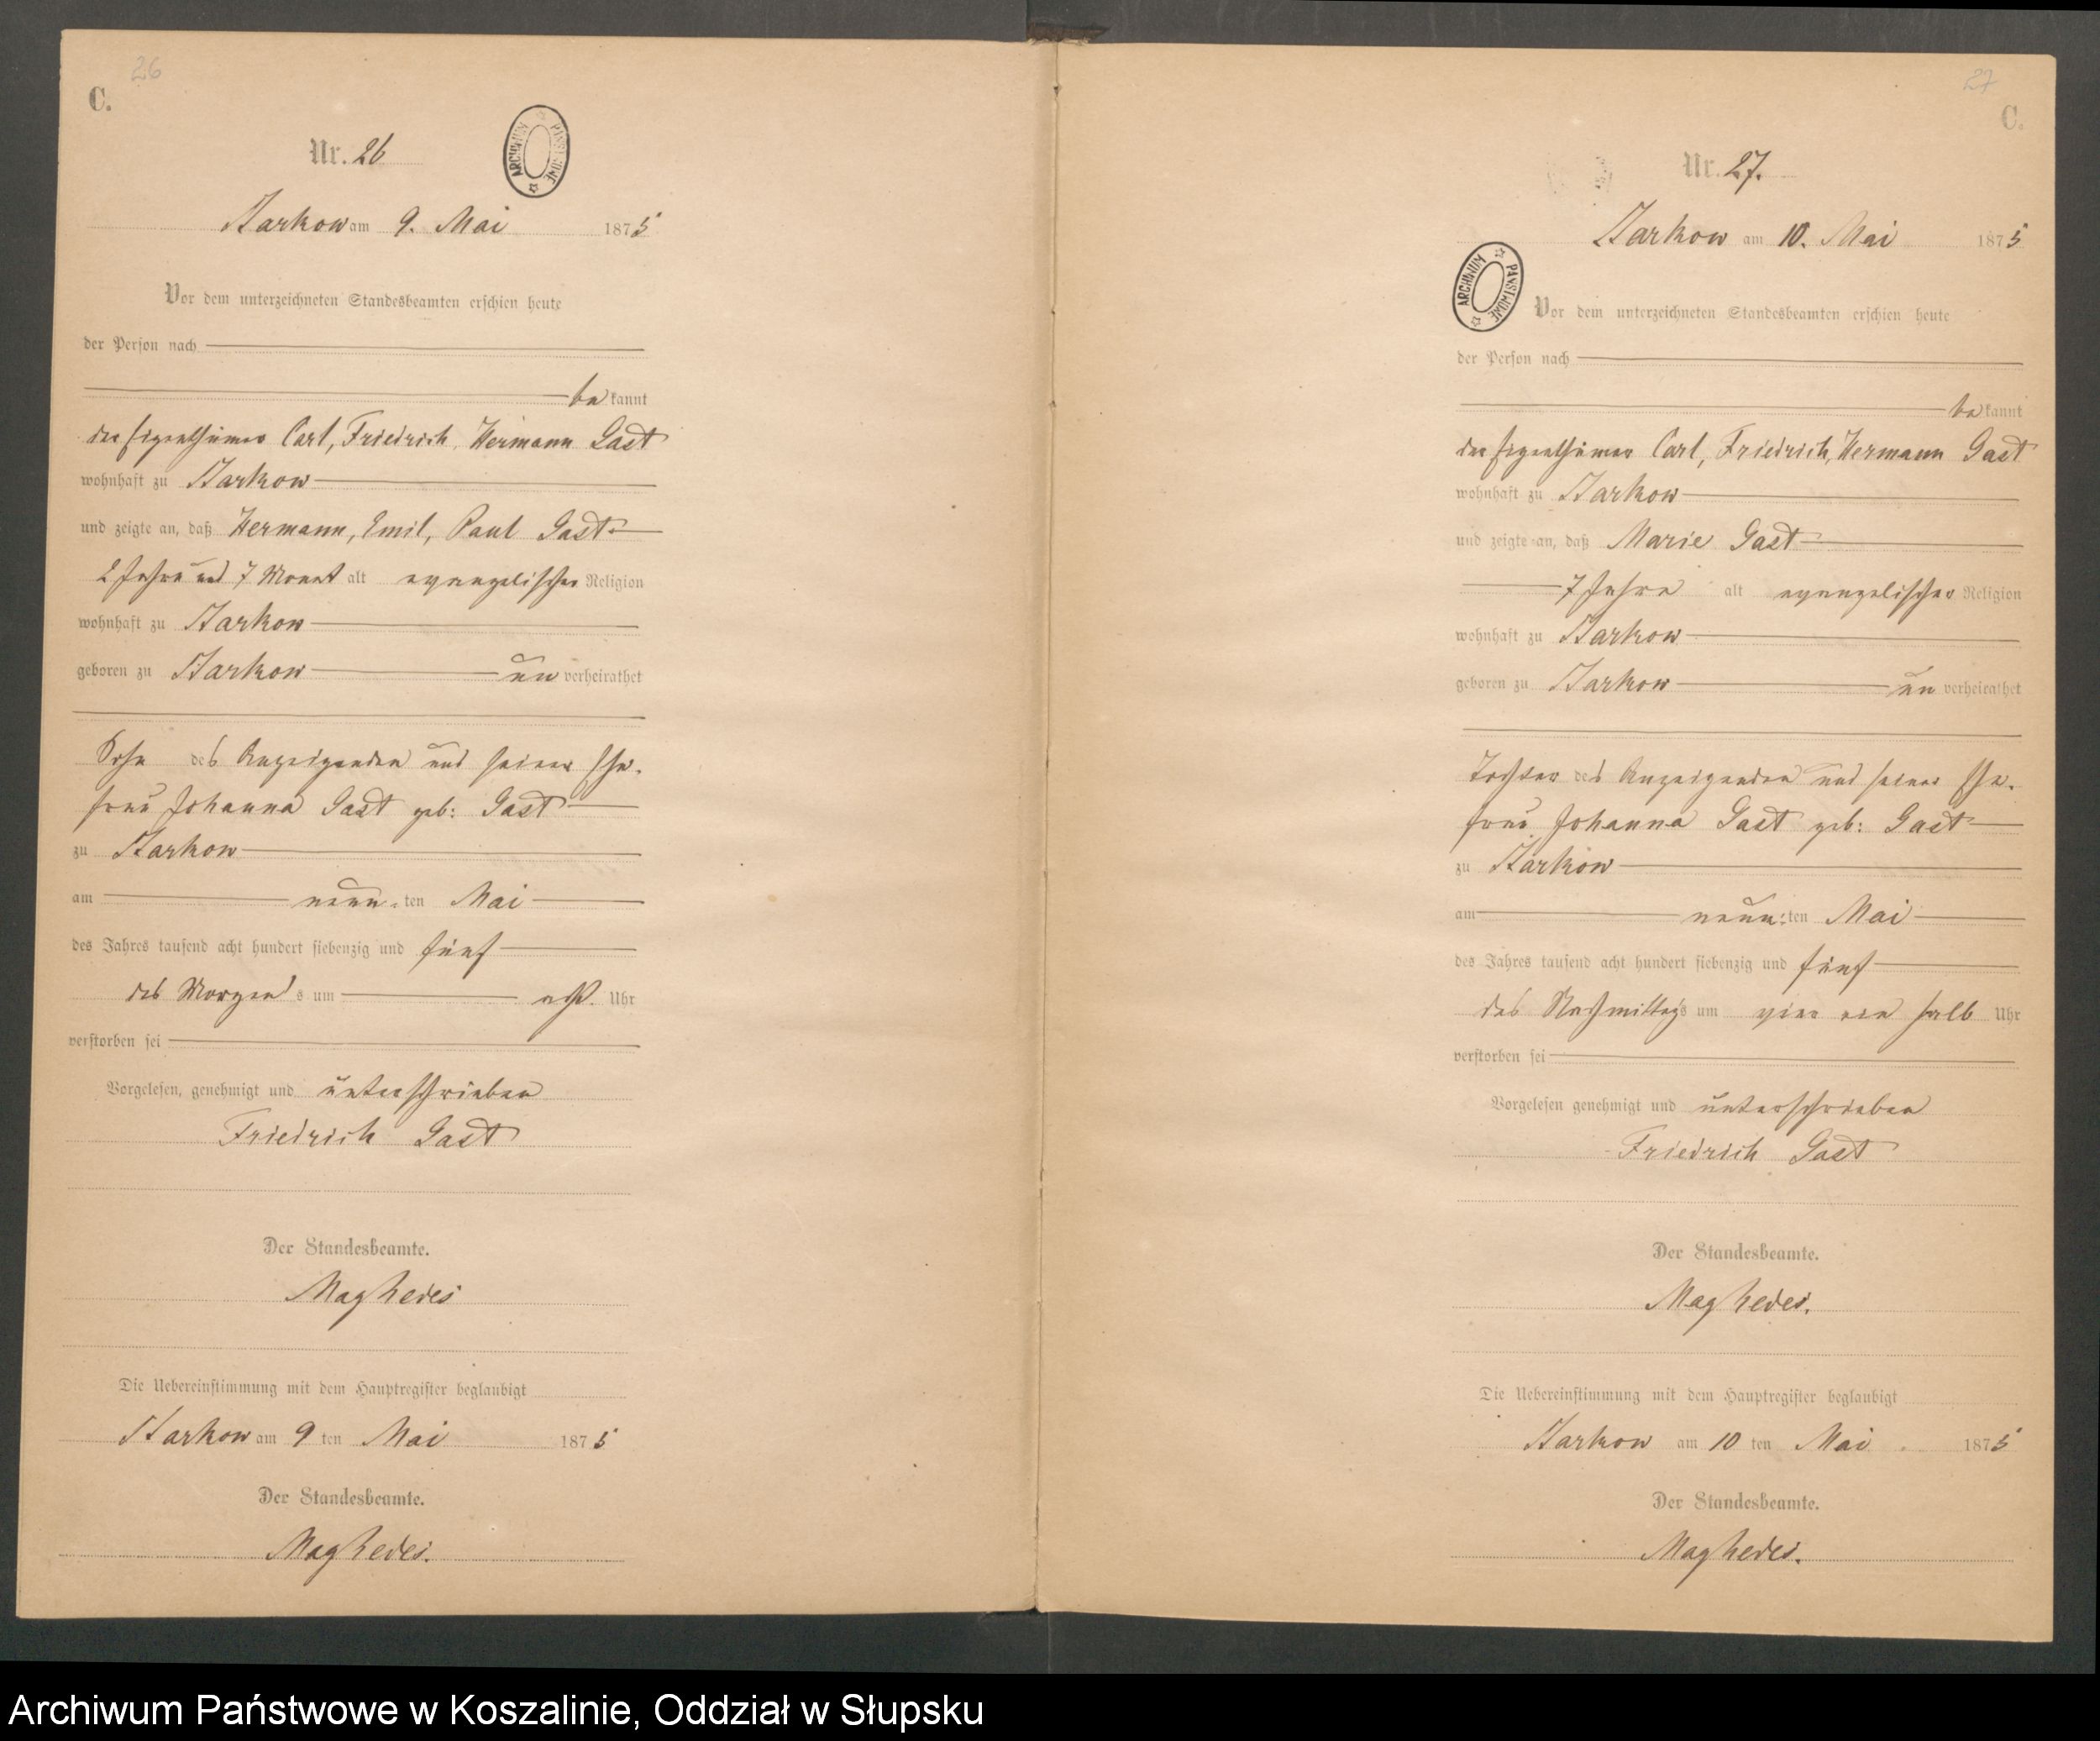 26
C.
Nr. 26
ARCHIWUM PAŃSTWOWE
Starkow am 9. Mai 1875
Vor dem unterzeichneten Standesbeamten erschien heute
der Person nach
bekannt
der Eigenthümer Carl, Friedrich, Hermann Gast
wohnhaft zu Starkow
und zeigte an, daß Hermann, Emil, Paul Gast
2 Jahre und 7 Monat alt evangelischer Religion
wohnhaft zu Starkow
geboren zu Starkow unverheirathet
Sohn des Anzeigenden und seiner Ehe-
frau Johanna Gast geb: Gast
zu Starkow
am neun-ten Mai
des Jahres tausend acht hundert siebenzig und fünf
des Morgens um acht Uhr
verstorben sei
Vorgelesen, genehmigt und unterschrieben
Friedrich Gast
Der Standesbeamte.
Die Uebereinstimmung mit dem Hauptregister beglaubigt
Starkow am 9 ten Mai 1875
Der Standesbeamte.
27
C.
Nr. 27.
Starkow am 10. Mai 1875
ARCHIWUM PAŃSTWOWE
Vor dem unterzeichneten Standesbeamten erschien heute
der Person nach
bekannt
der Eigenthümer Carl, Friedrich, Hermann Gast
wohnhaft zu Starkow
und zeigte an, daß Marie Gast
7 Jahre alt evangelischer Religion
wohnhaft zu Starkow
geboren zu Starkow unverheirathet
Tochter des Anzeigenden und seiner Ehe-
frau Johanna Gast geb: Gast
zu Starkow
am neun-ten Mai
des Jahres tausend acht hundert siebenzig und fünf
des Nachmittags um vier ein halb Uhr
verstorben sei
Vorgelesen genehmigt und unterschrieben
Friedrich Gast
Der Standesbeamte.
Die Uebereinstimmung mit dem Hauptregister beglaubigt
Starkow am 10 ten Mai 1875
Der Standesbeamte.
Archiwum Państwowe w Koszalinie, Oddział w Słupsku